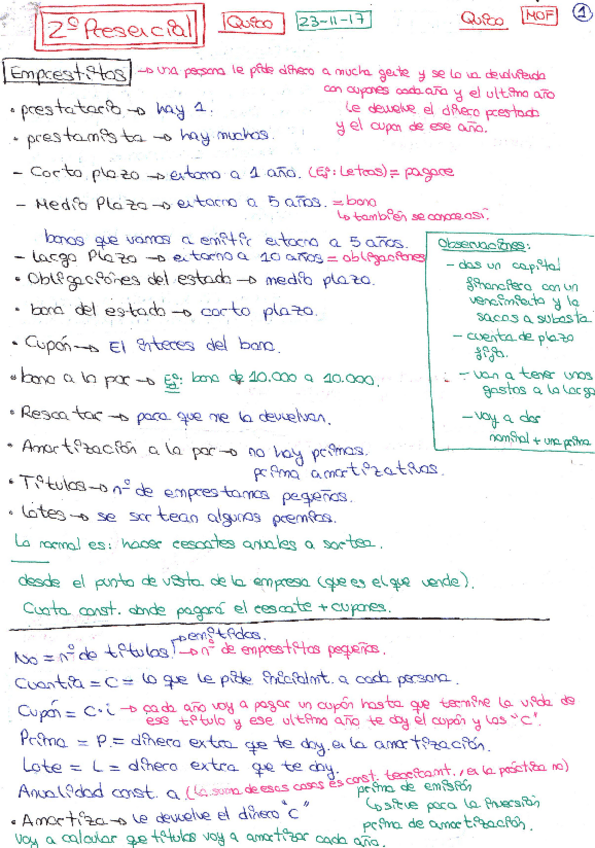 2º Presencial Quico 23-11-17 Quico MOF 1
Emprestitos → una persona le pide dinero a mucha gente y se lo va devolviendo
con cupones cada año y el ultimo año
le devuelve el dinero prestado
y el cupon de ese año.
• prestatario → hay 1.
• prestamista → hay muchos.
- Corto plazo → entorno a 1 año. (Ej: Letras) = pagare
- Medio Plazo → entorno a 5 años. = bono
↳ también se conoce así.
bonos que vamos a emitir entorno a 5 años.
- Largo Plazo → entorno a 10 años = obligaciones
• Obligaciones del estado → medio plazo.
• bono del estado → corto plazo.
• Cupón → El interes del bono.
• bono a la par → Ej: bono de 10.000 a 10.000.
• Rescatar → para que me la devuelvan.
• Amortización a la par → no hay primas.
prima amortizativas.
• Titulos → nº de emprestamos pequeños.
• Lotes → se sortean algunos premios.
Lo normal es: hacer rescates anuales a sorteo.
Observaciones:
- das un capital
financiero con un
vencimiento y la
sacas a subasta
- cuenta de plazo
fijo.
- van a tener unos
gastos a lo largo
- voy a dar
nominal + una prima
desde el punto de vista de la empresa (que es el que vende).
Cuota const. donde pagará el rescate + cupones.
No = nº de titulos → emitidos.
→ nº de emprestitos pequeños.
Cuantia = C = lo que le pide inicialmt. a cada persona.
Cupón = C·i → cada año voy a pagar un cupón hasta que termine la vida de
ese titulo y ese ultimo año te doy el cupón y los "C".
Prima = P = dinero extra que te doy en la amortización.
Lote = L = dinero extra que te doy.
Anualidad const. a (la suma de esas cosas es const. teoricamt., en la práctica no)
prima de emisión
↳ sirve para la inversión
• Amortiza → le devuelve el dinero "C"
prima de amortización.
Voy a calcular que titulos voy a amortizar cada año.